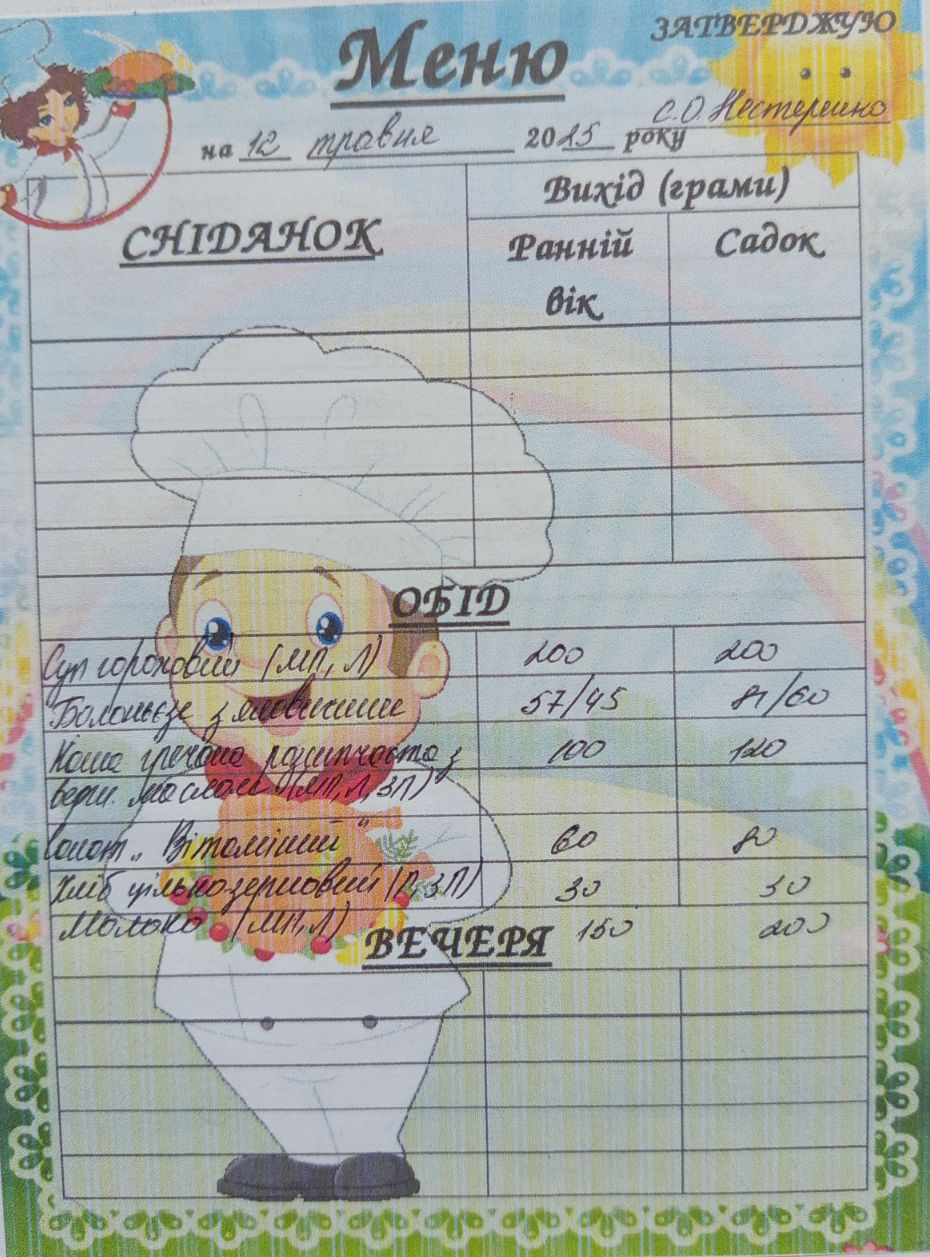 Меню
ЗАТВЕРДЖУЮ
С.О. Нестеренко
на 12 травня 2025 року
СНІДАНОК
Вихід (грами)
Ранній вік
Садок
ОБІД
Суп гороховий (МП, Л) 200 200
Болоньєзе з яловичини 57/45 81/60
Каша гречана розсипчаста з 100 120
верш. маслом (МП, Л, ЗП)
Салат „Вітамінний" 60 80
Хліб цільнозерновий (Г, ЗП) 30 30
Молоко (МП, Л) 150 200
ВЕЧЕРЯ